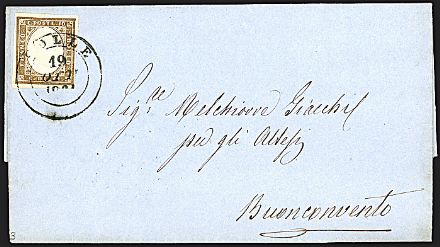 COLLE
19
OTT
Sig.re Melchiorre Giacchi
per gli Altesi
Buonconvento